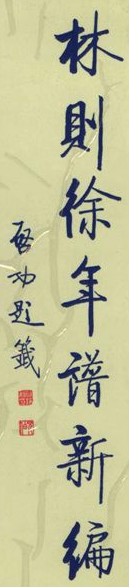 林則徐年譜新編
啓功題籤